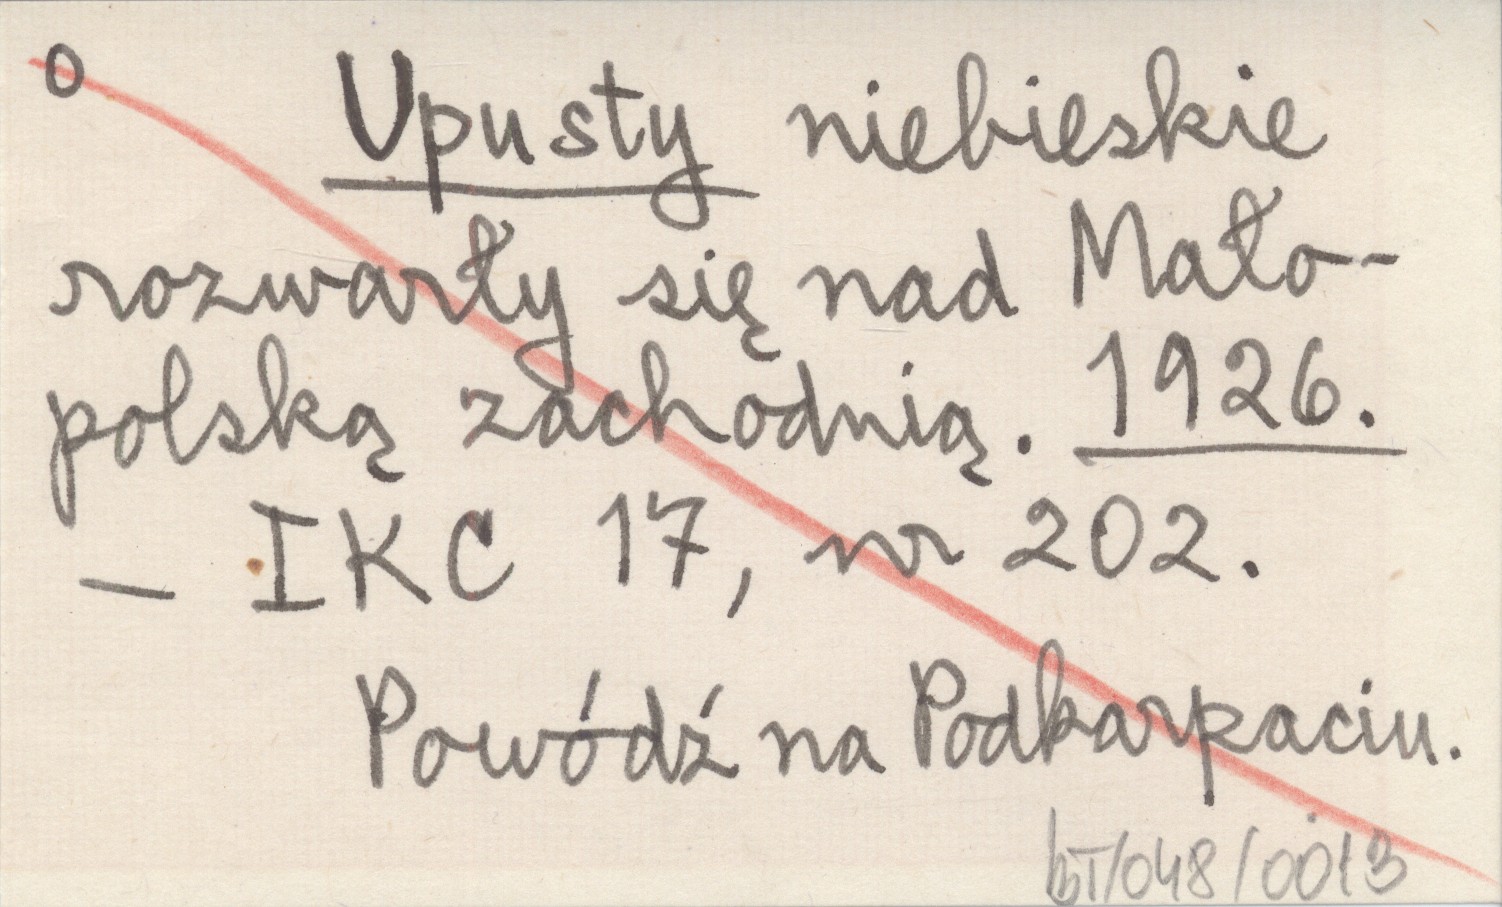 O Upusty niebieskie
rozwarły się nad Mało-
polską zachodnią. 1926.
— IKC 17, nr 202.
Powódź na Podkarpaciu.
BT/048/0013